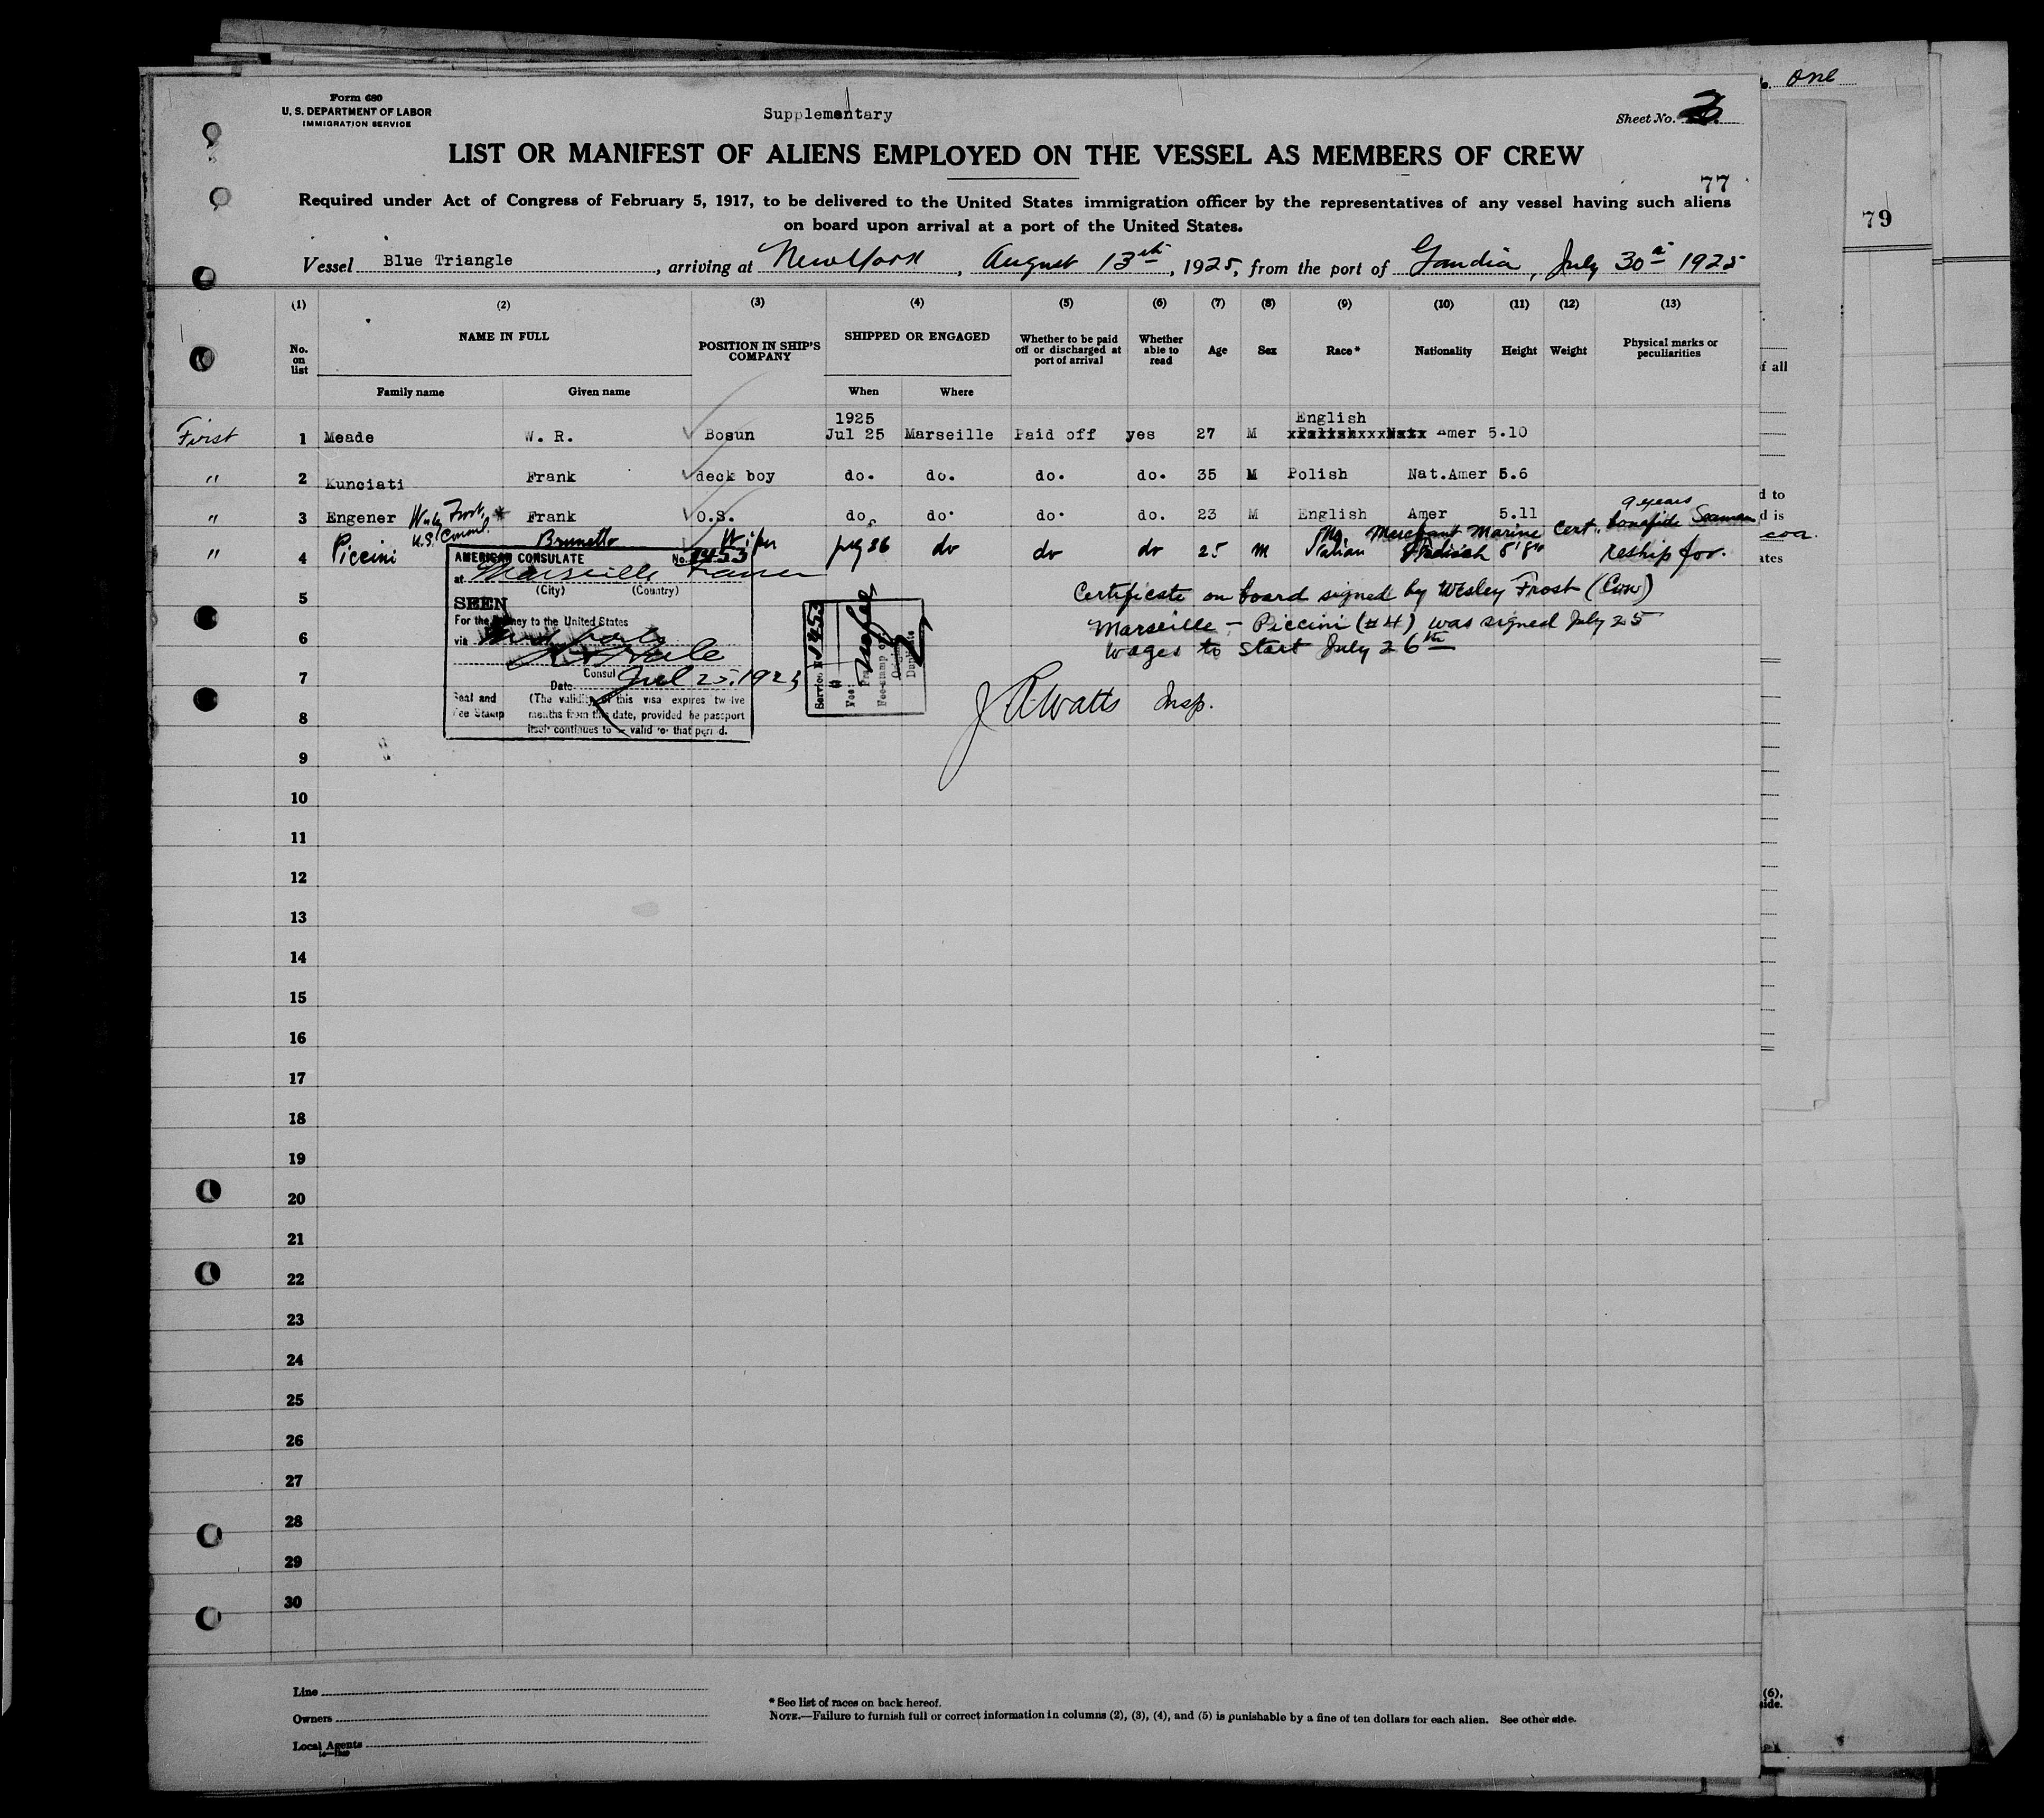 Form 680
U. S. DEPARTMENT OF LABOR
IMMIGRATION SERVICE
Supplementary
Sheet No.
one
LIST OR MANIFEST OF ALIENS EMPLOYED ON THE VESSEL AS MEMBERS OF CREW
77
79
Required under Act of Congress of February 5, 1917, to be delivered to the United States immigration officer by the representatives of any vessel having such aliens
on board upon arrival at a port of the United States.
Vessel Blue Triangle, arriving at New York, August 13th, 1925, from the port of Gandia, July 30th 1925
(1) (2) (3) (4) (5) (6) (7) (8) (9) (10) (11) (12) (13)
No. on list NAME IN FULL POSITION IN SHIP'S COMPANY SHIPPED OR ENGAGED Whether to be paid off or discharged at port of arrival Whether able to read Age Sex Race* Nationality Height Weight Physical marks or peculiarities
Family name Given name When Where
1925 English
First 1 Meade W. R. Bosun Jul 25 Marseille Paid off yes 27 M Amer 5.10
" 2 Kunciati Frank deck boy do. do. do. do. 35 M Polish Nat.Amer 5.6
9 years
" 3 Engener Frank O.S. do. do. do. do. 23 M English Amer 5.11
U.S. Consul. Merchant Marine Cert. bonafide Seaman
" 4 Piccini Brunetto Wiper July 26 do do do 25 M Italian 5'8" reship for.
AMERICAN CONSULATE No. 1453
at Marseille France
(City) (Country)
SEEN
For the journey to the United States
via
Consul
Date Jul 25. 1925
Seal and Fee Stamp
(The validity of this visa expires twelve
months from this date, provided he passport
itself continues to be valid for that period.
Service No. 1453
Fee: No fee
Certificate on board signed by Wesley Frost (Con)
Marseille - Piccini (#4) was signed July 25
Wages to start July 26th
J R Watts Insp.
5
6
7
8
9
10
11
12
13
14
15
16
17
18
19
20
21
22
23
24
25
26
27
28
29
30
Line
Owners
Local Agents
* See list of races on back hereof.
NOTE.—Failure to furnish full or correct information in columns (2), (3), (4), and (5) is punishable by a fine of ten dollars for each alien. See other side.